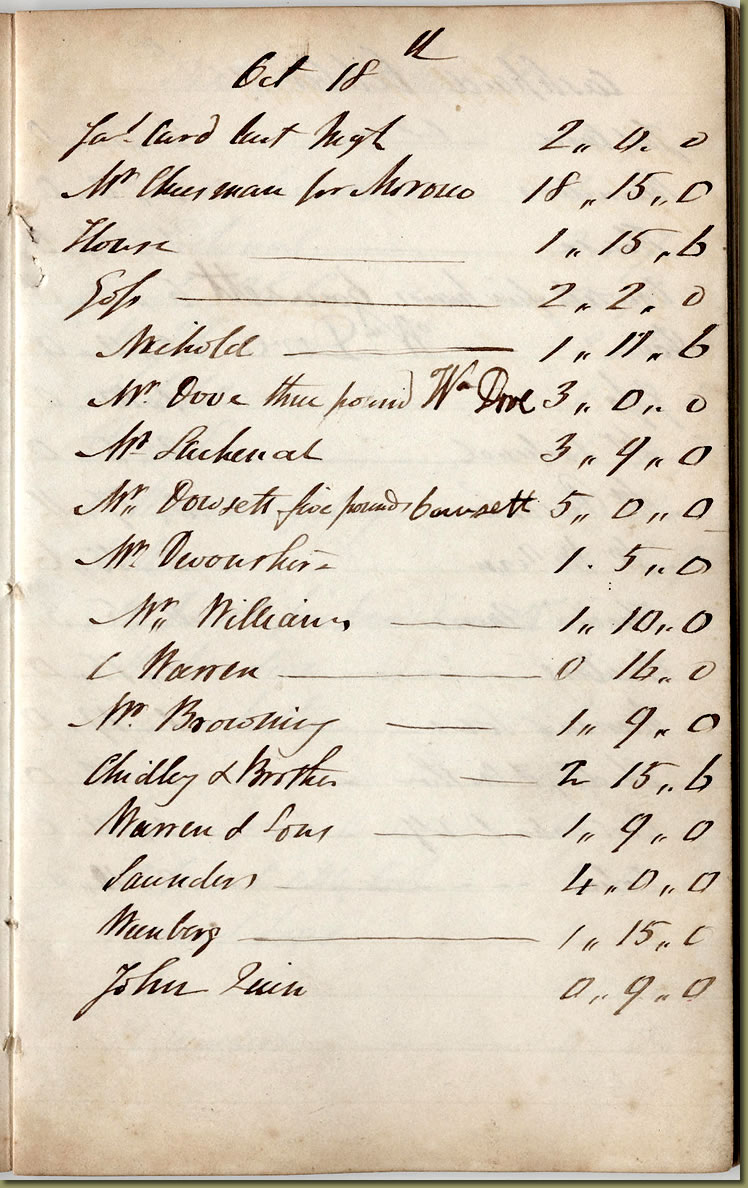 Oct 18th
Jas Card last Night 2,, 0. 0
Mr Cheesman for Morocco 18,, 15,, 0
House 1,, 15,, 6
Goss 2,, 2,, 0
Neibold 1,, 17,, 6
Mr. Dove three pound Wm Dove 3,, 0,, 0
Mr 3,, 9,, 0
Mr,, Dowsett five pounds Dowsett 5,, 0,, 0
Mr. Devonshire 1. 5,, 0
Mr,, Williams 1,, 10,, 0
C Warren 0 16,, 0
Mr. Browning 1,, 9,, 0
Chidley & Brother 2 15,, 6
Warren & Sons 1,, 9,, 0
Saunders 4,, 0,, 0
Weenberg 1,, 15,, 0
John Quin 0,, 9,, 0